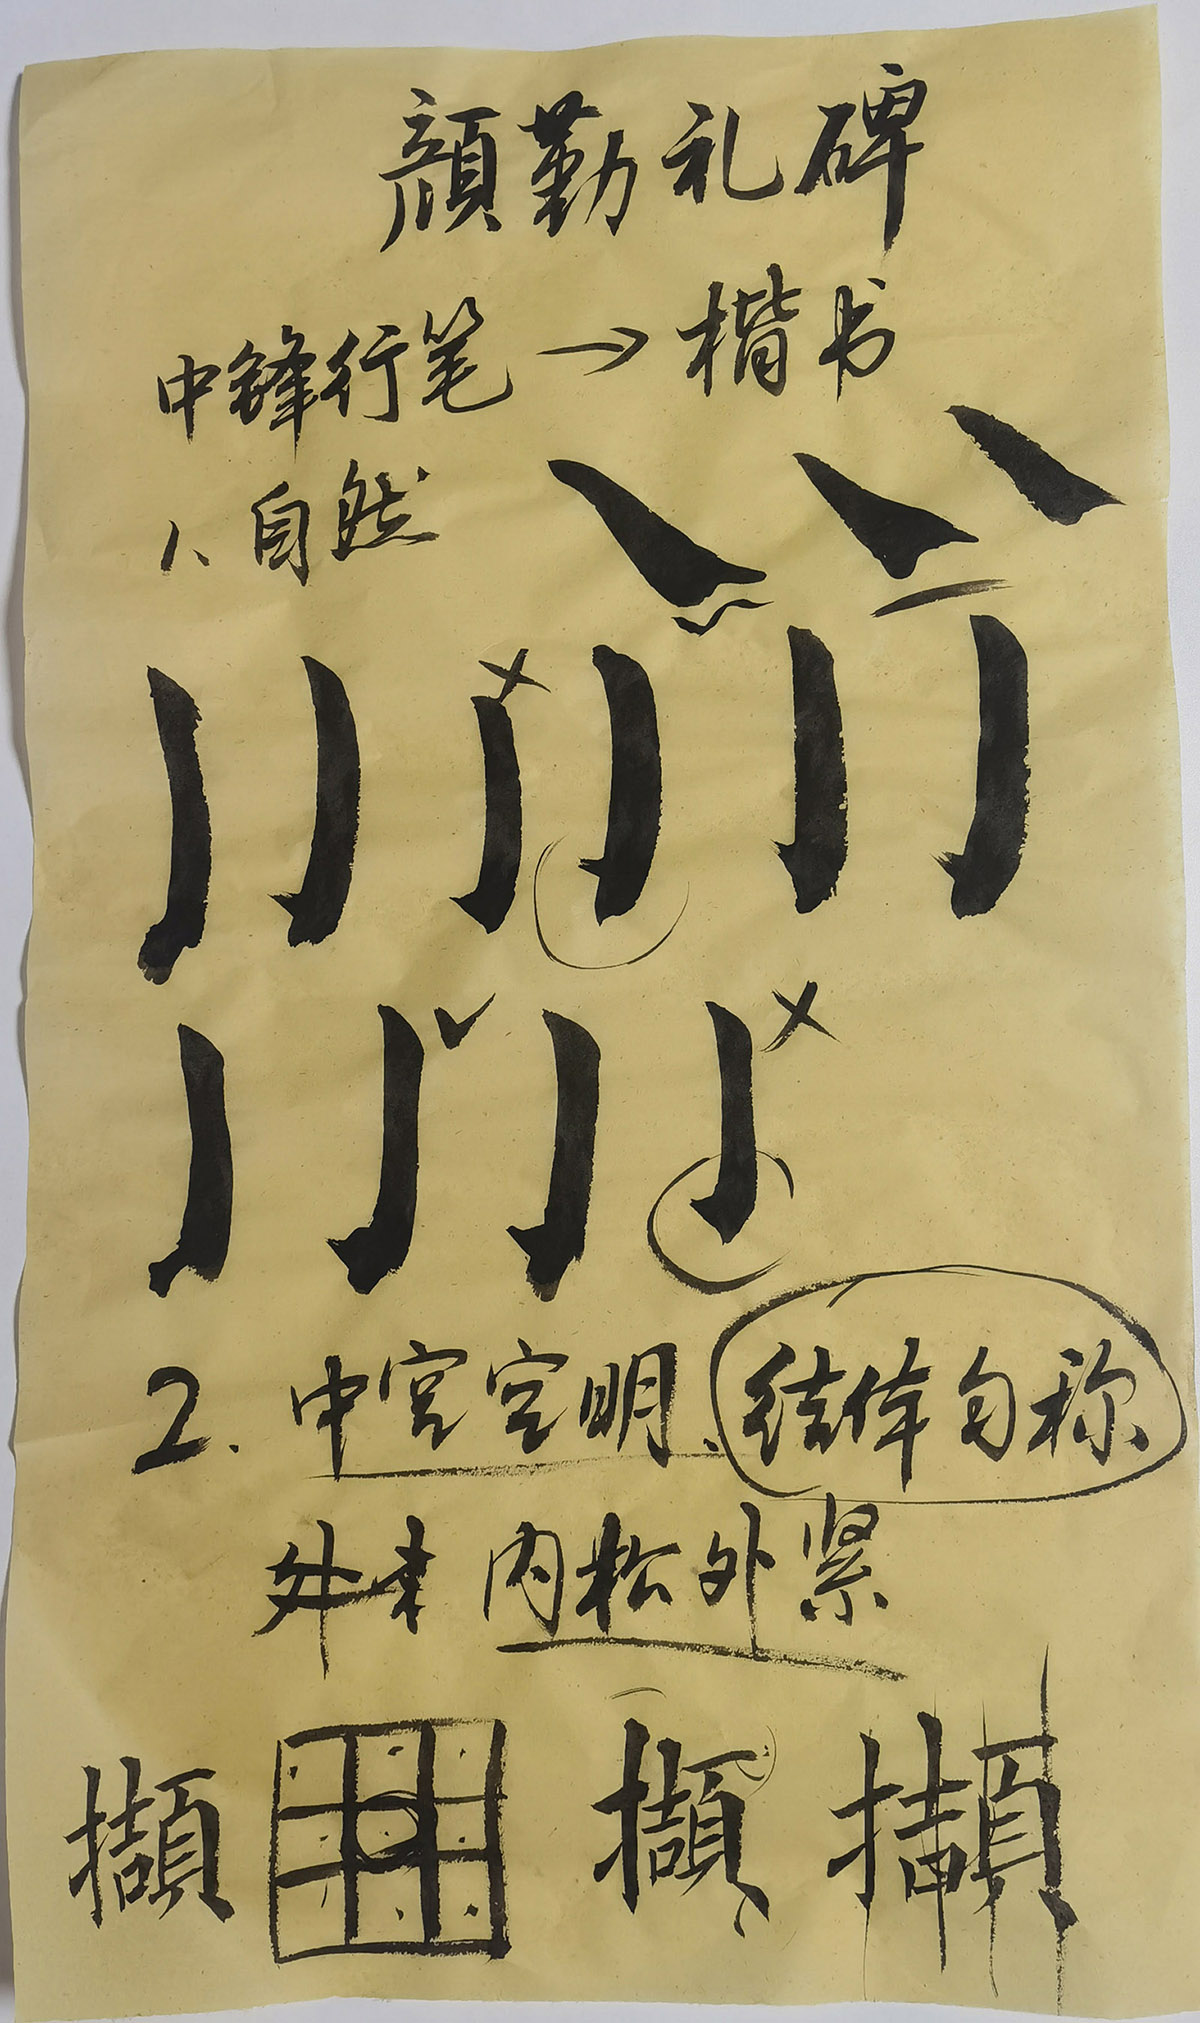 颜勤礼碑
中锋行笔→楷书
1、自然
2.中宫宫明、结体匀称
外 内松外紧
擷 擷 擷